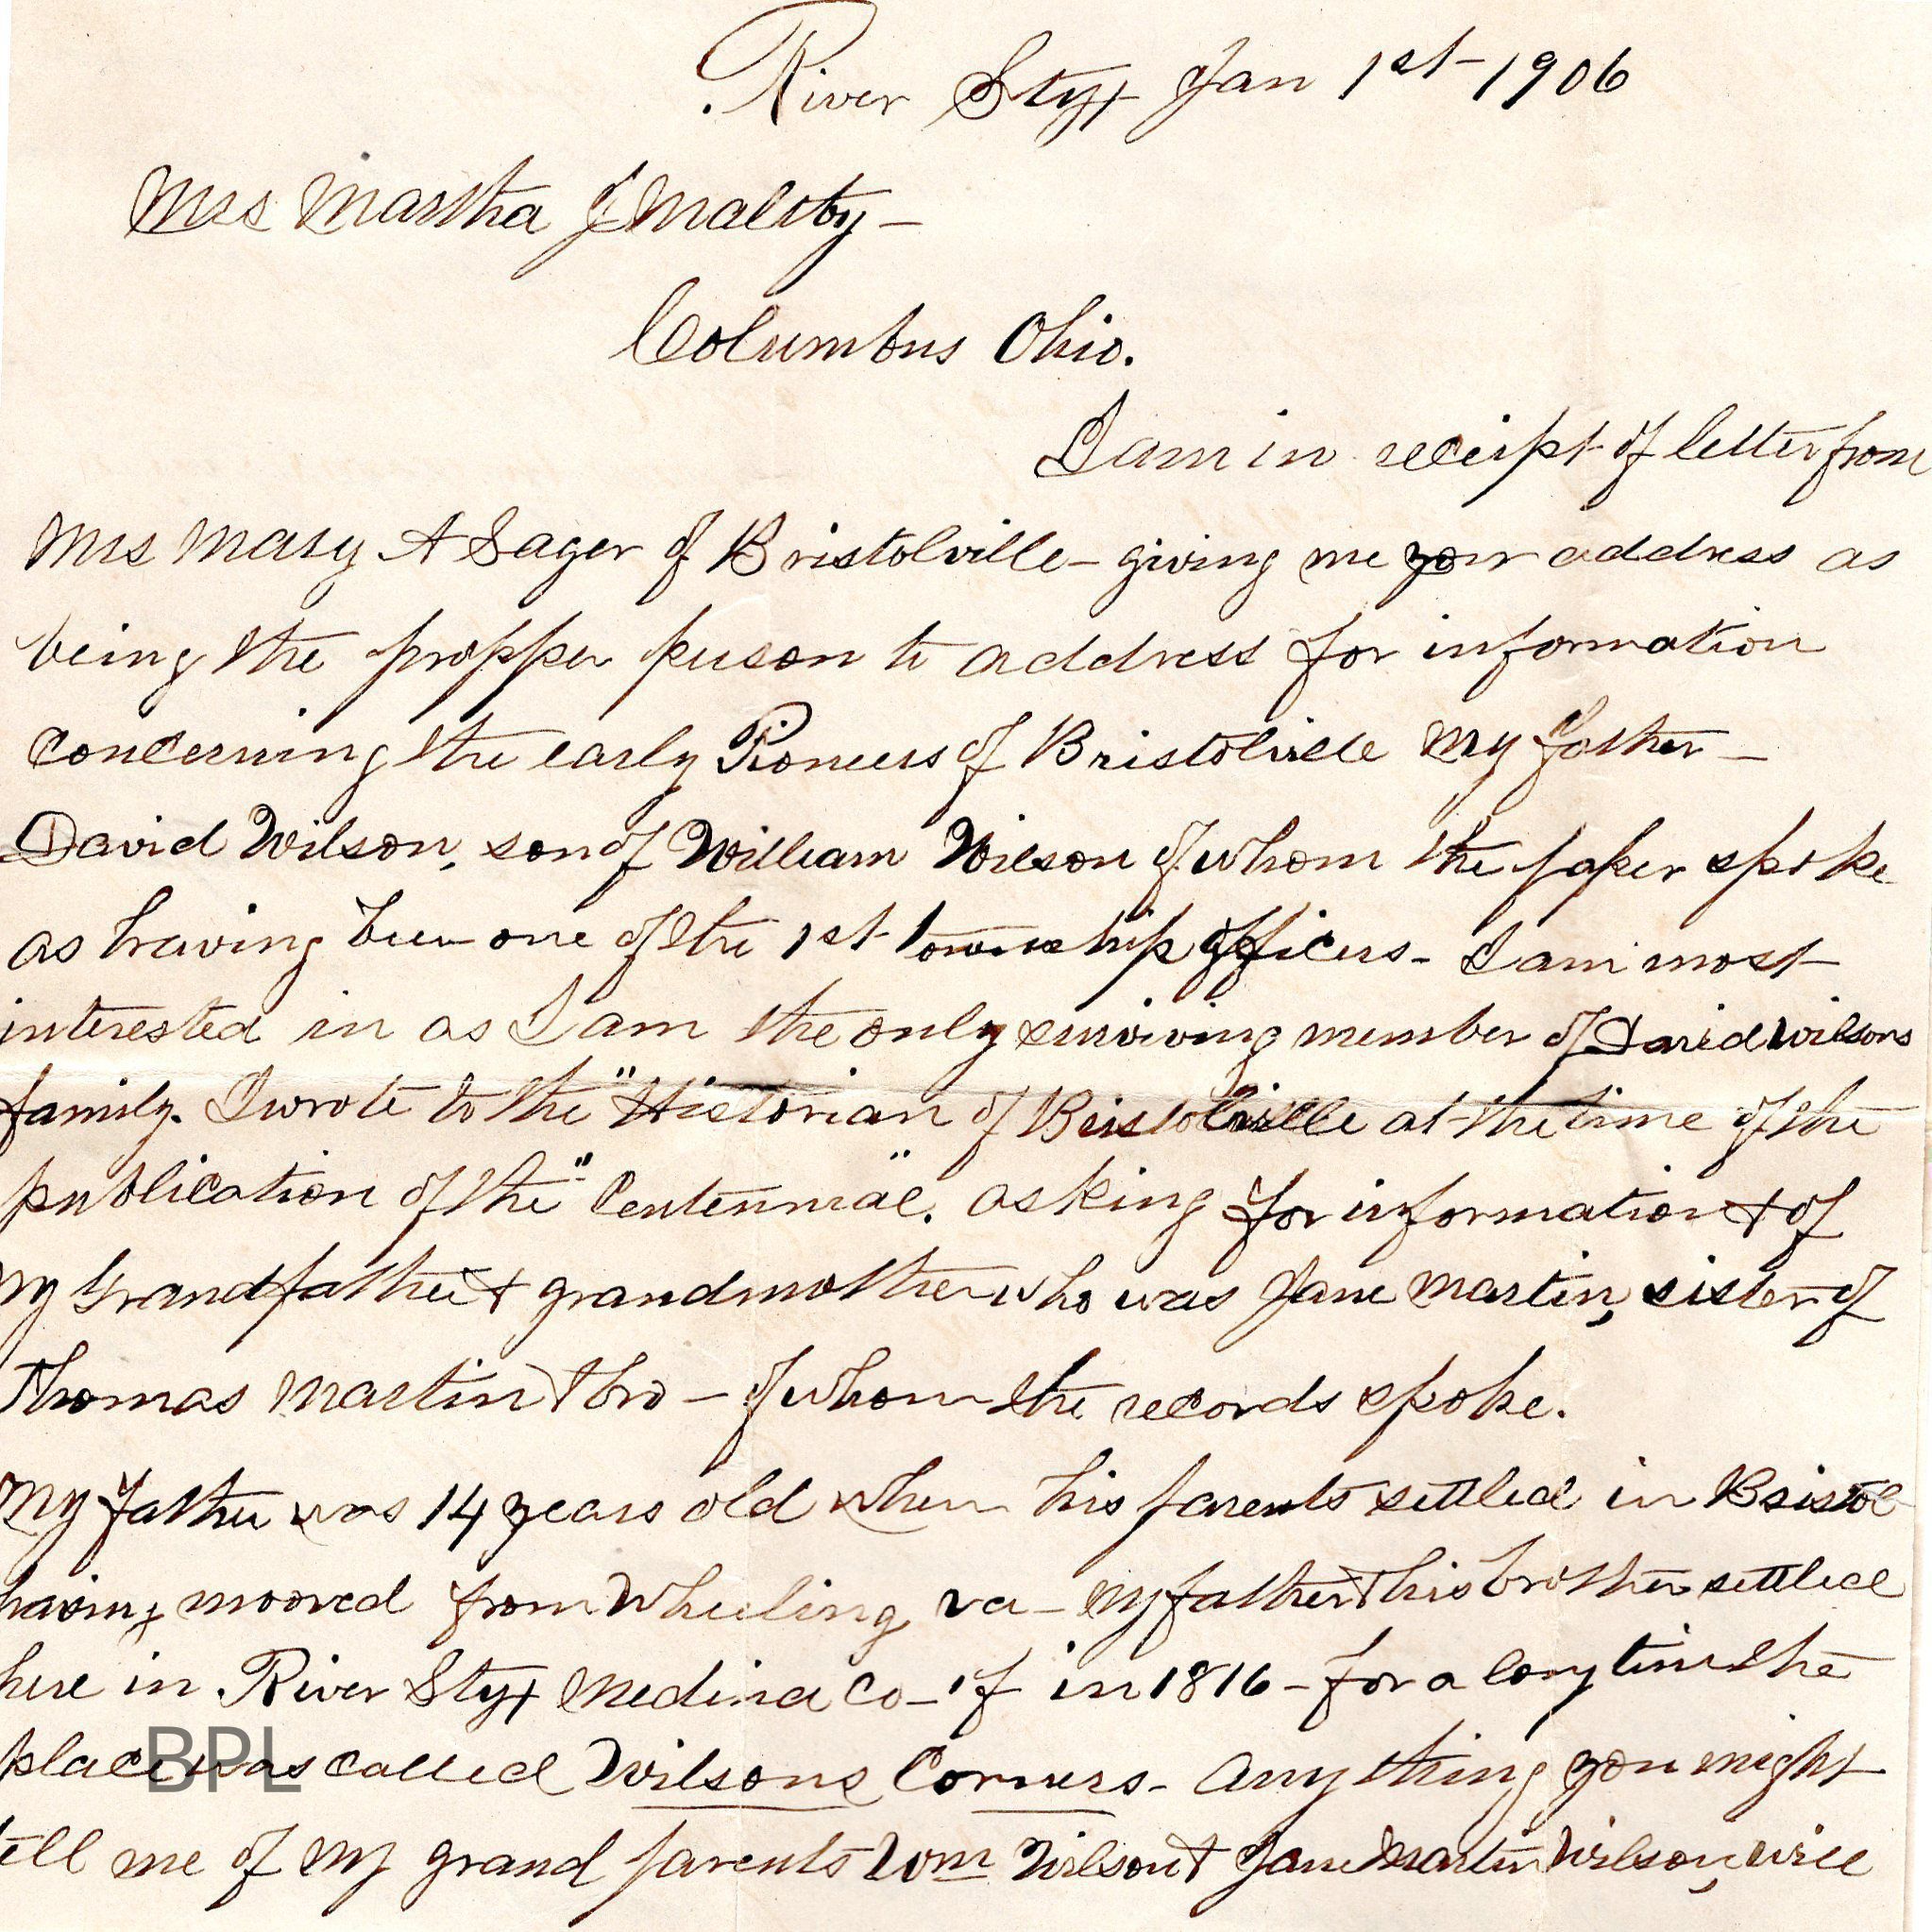 River Styx Jan 1st - 1906
Mrs Martha J Maltby -
Columbus Ohio.
I am in receipt of letter from
Mrs Mary A Sager of Bristolville - giving me your address as
being the propper person to address for information
concerning the early Pioneers of Bristolville My father -
David Wilson, son of William Wilson of whom the paper spoke
as having been one of the 1st township officers - I am most
interested in as I am the only surviving member of David Wilsons
family. I wrote to the "Historian of Bristolville at the time of the
publication of the "Centennial". asking for information & of
my Grandfather & grandmother who was Jane Martin, sister of
Thomas Martin & bro - of whom the records spoke.
My father was 14 years old when his parents settled in Bristol
having mooved from Wheeling va - My father & his brother settled
here in River Styx Medina Co - if in 1816 - for a long time the
place was called Wilsons Corners - Any thing you might
tell me of my grand parents Wm Wilson & Jane Martin Wilson, will
BPL